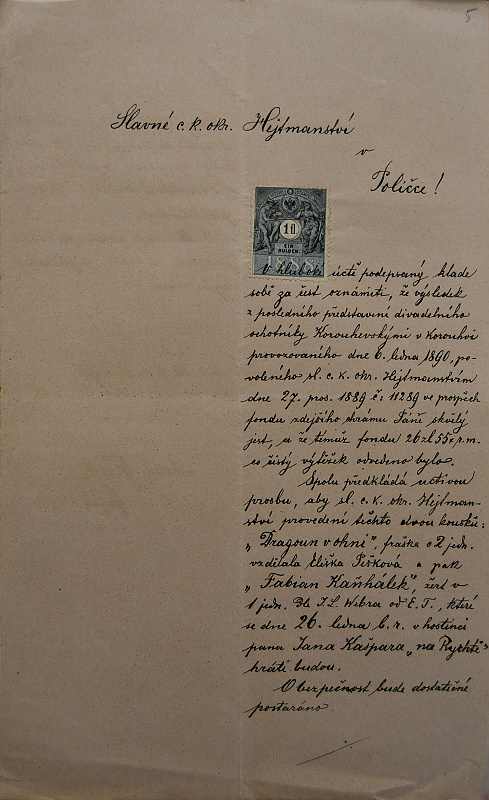 5
Slavné c. k. okr. Hejtmanství
v
Poličce!
1 fl.
EIN
GULDEN.
1888
V hluboké úctě podepsaný klade
sobě za čest oznámiti, že výsledek
z posledního představení divadelního
ochotníky Korouhevskými v Korouhvi
provozovaného dne 6. ledna 1890, po-
voleného sl. c. k. okr. Hejtmanstvím
dne 27. pros. 1889 č: 11289 ve prospěch
fondu zdejšího chrámu Páně skvělý
jest, a že témuž fondu 26 zl 55 r. m.
co čistý výtěžek odvedeno bylo.
Spolu předkládá uctivou
prosbu, aby sl. c. k. okr. Hejtman-
ství provedení těchto dvou kousků:
„Dragoun v ohni", fraška o 2 jedn.
vzdělala Eliška Pešková a pak
„Fabian Kaňhálek", žert v
1 jedn. Dle J. L. Webra od E. T., které
se dne 26. ledna b. r. v hostinci
pana Jana Kašpara „na Rychtě"
hráti budou.
O bezpečnost bude dostatečně
postaráno.